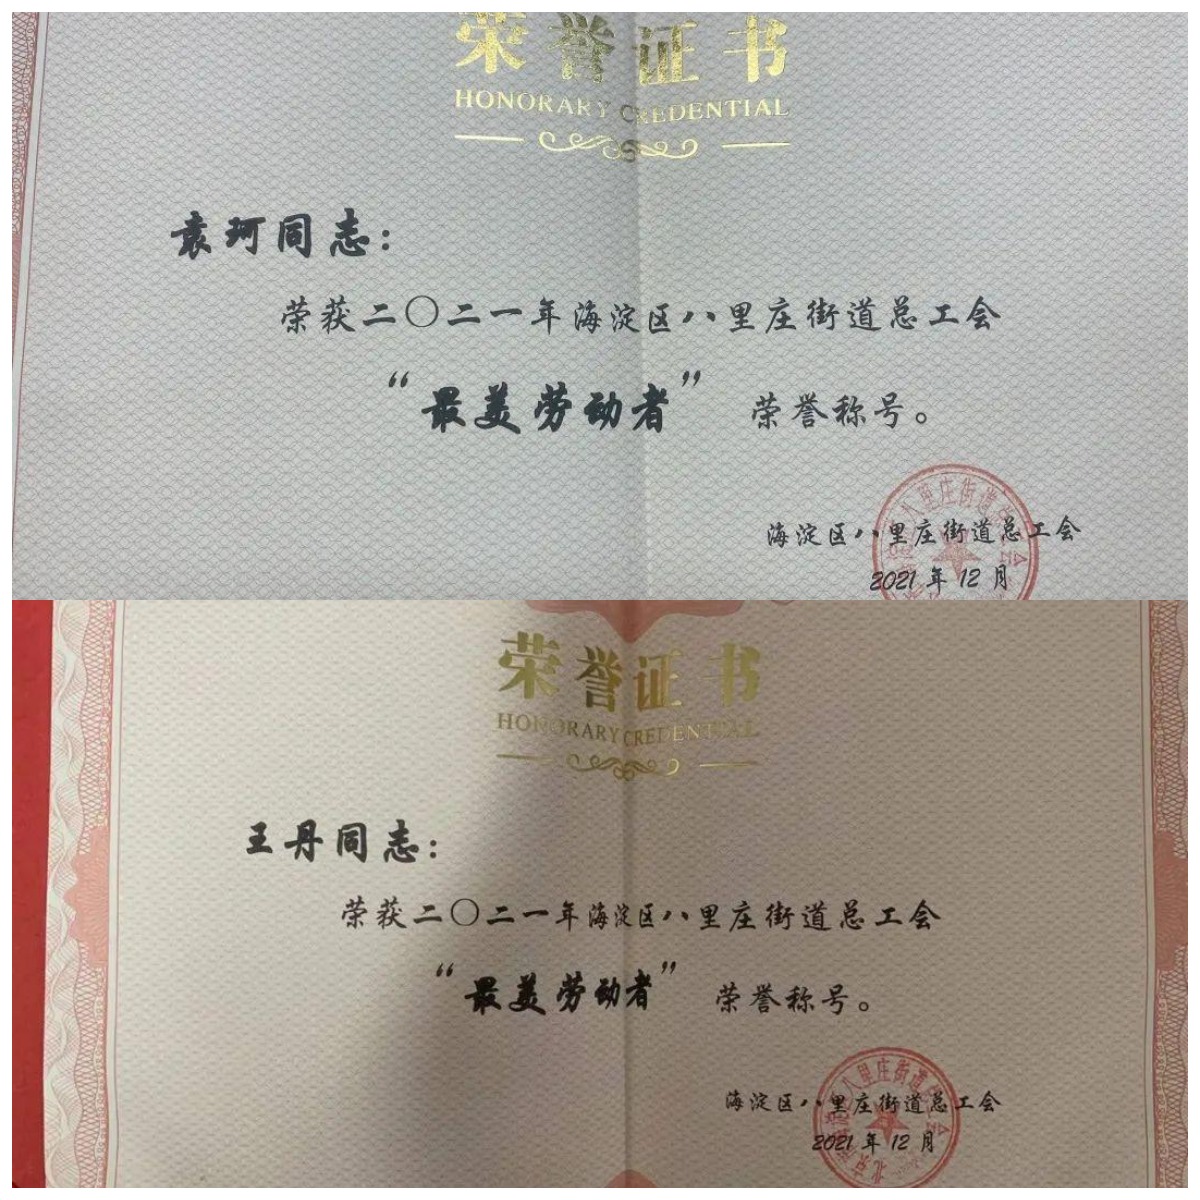 荣誉证书
HONORARY CREDENTIAL
袁珂同志：
荣获二〇二一年海淀区八里庄街道总工会
“最美劳动者” 荣誉称号。
海淀区八里庄街道总工会
2021年12月
荣誉证书
HONORARY CREDENTIAL
王丹同志：
荣获二〇二一年海淀区八里庄街道总工会
“最美劳动者” 荣誉称号。
海淀区八里庄街道总工会
2021年12月